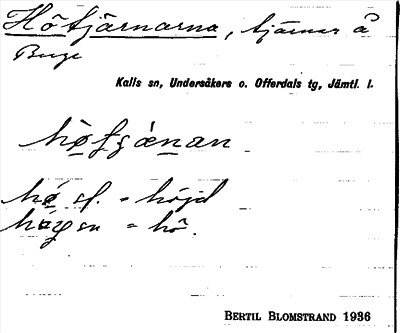 Hötjärnarna, tjärnar å
Berge
Kalls sn, Undersåkers o. Offerdals tg, Jämtl. l.
hø sf. = höjd
sn = hö.
BERTIL BLOMSTRAND 1936